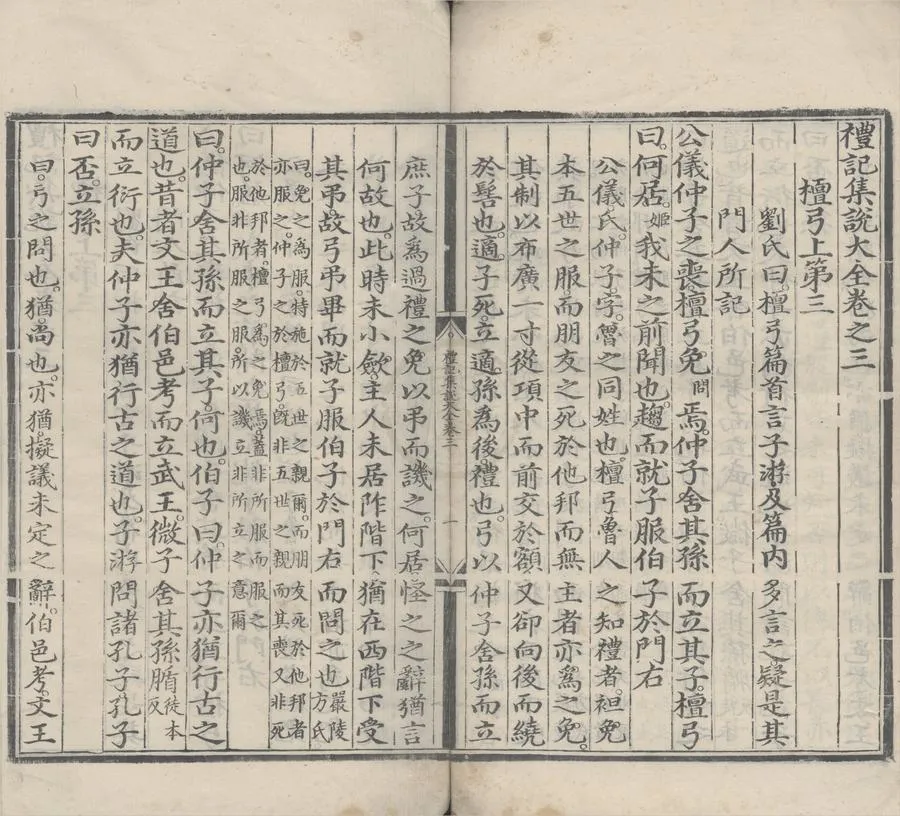 禮記集說大全卷之三
檀弓上第三
劉氏曰。檀弓篇首言子游。及篇內多言之。疑是其
門人所記
公儀仲子之喪。檀弓免問焉。仲子舍其孫而立其子。檀弓
曰。何居。姬我未之前聞也。趨而就子服伯子於門右
公儀氏。仲子字。魯之同姓也。檀弓魯人之知禮者。袒免
本五世之服。而朋友之死於他邦而無主者亦爲之免。
其制以布廣一寸從項中而前交於額。又卻向後而繞
於髻也。適子死。立適孫爲後禮也。弓以仲子舍孫而立
禮記集說大全卷三
一
庶子故爲過禮之免以弔而譏之。何居怪之之辭猶言
何故也。此時未小斂。主人未居阼階下猶在西階下受
其弔。故弓弔畢而就子服伯子於門右而問之也。嚴陵方氏
曰。免之爲服。特施於五世之親爾。而朋友死於他邦者
亦服之。仲子之於檀弓。旣非五世之親。而其喪又非死
於他邦者。檀弓爲之免焉。蓋非所服而服之
也。服非所服之服。所以譏立非所立之意爾
曰。仲子舍其孫而立其子。何也。伯子曰。仲子亦猶行古之
道也。昔者文王舍伯邑考而立武王。微子舍其孫腯徒本反
而立衍也。夫仲子亦猶行古之道也。子游問諸孔子。孔子
曰否。立孫
曰。弓之問也。猶尚也。亦猶擬議未定之辭。伯邑考。文王